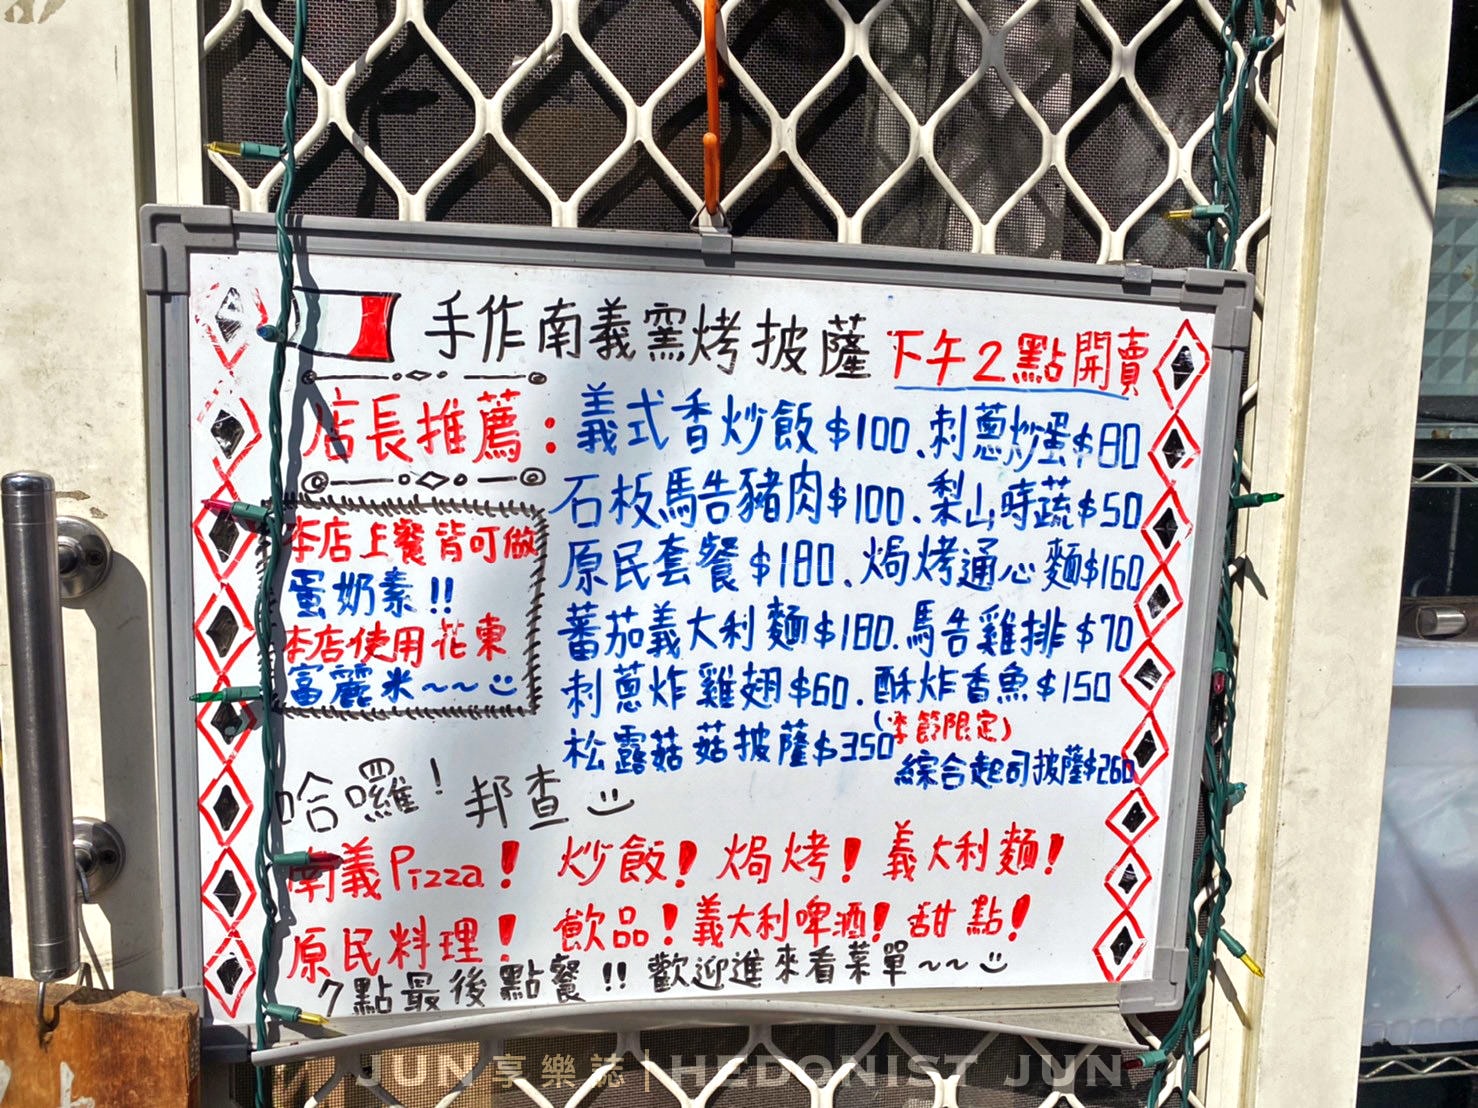 手作南義窯烤披薩 下午2點開賣
店長推薦：義式香炒飯$100、刺蔥炒蛋$80
石板馬告豬肉$100、梨山時蔬$50
原民套餐$180、焗烤通心麵$160
蕃茄義大利麵$180、馬告雞排$70
刺蔥炸雞翅$60、酥炸香魚$150
(季節限定)
松露菇菇披薩$350
綜合起司披薩$260
本店上餐皆可做
蛋奶素!!
本店使用花東
富麗米~~
哈囉! 邦查
南義Pizza! 炒飯! 焗烤! 義大利麵!
原民料理! 飲品! 義大利啤酒! 甜點!
7點最後點餐!! 歡迎進來看菜單~~
JUN享樂誌|HEDONIST JUN